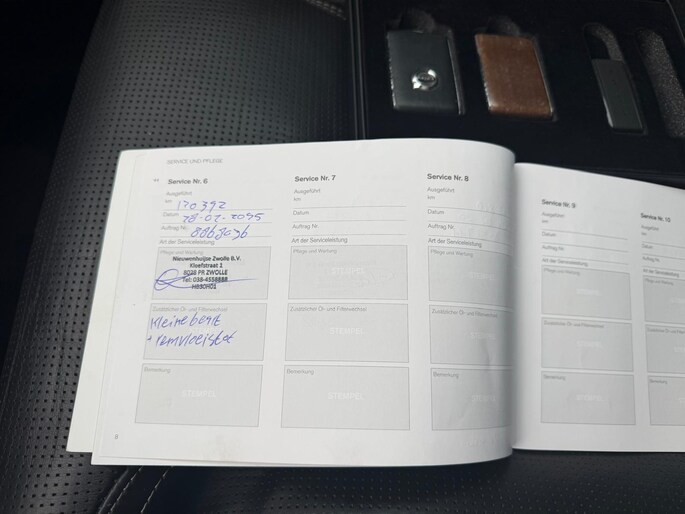 SERVICE UND PFLEGE
Service Nr. 6
Ausgeführt
km 170392
Datum
Auftrag Nr.
Art der Serviceleistung
Pflege und Wartung
Nieuwenhuijze Zwolle B.V.
Kleefstraat 1
8028 PR ZWOLLE
Tel: 038-4558888
Zusätzlicher Öl- und Filterwechsel
Kleine beurt
+ remvloeistof
Bemerkung
STEMPEL
8
Service Nr. 7
Ausgeführt
km
Datum
Auftrag Nr.
Art der Serviceleistung
Pflege und Wartung
STEMPEL
Zusätzlicher Öl- und Filterwechsel
STEMPEL
Bemerkung
STEMPEL
Service Nr. 8
Ausgeführt
km
Datum
Auftrag Nr.
Art der Serviceleistung
Pflege und Wartung
STEMPEL
Zusätzlicher Öl- und Filterwechsel
STEMPEL
Bemerkung
STEMPEL
Service Nr. 9
Ausgeführt
km
Datum
Auftrag Nr.
Art der Serviceleistung
Pflege und Wartung
STEMPEL
Zusätzlicher Öl- und Filterwechsel
STEMPEL
Bemerkung
STEMPEL
Service Nr. 10
Ausgeführt
km
Datum
Auftrag Nr.